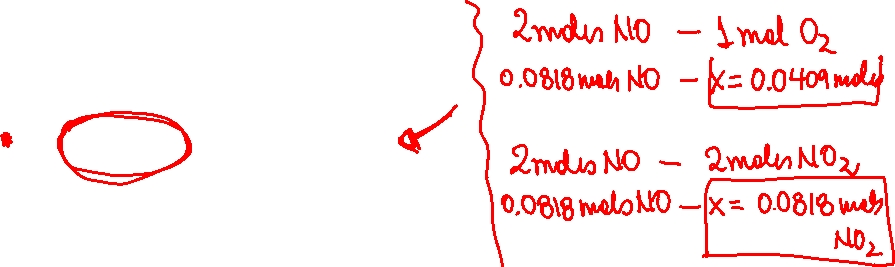 2 moles NO – 1 mol O₂
0.0818 moles NO – x = 0.0409 moles
2 moles NO – 2 moles NO₂
0.0818 moles NO – x = 0.0818 moles
NO₂